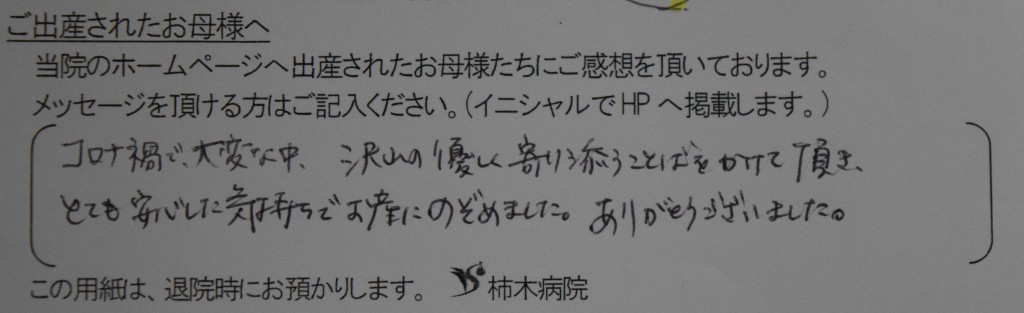 ご出産されたお母様へ
当院のホームページへ出産されたお母様たちにご感想を頂いております。
メッセージを頂ける方はご記入ください。(イニシャルでHPへ掲載します。)
コロナ禍で、大変な中、沢山の優しく寄り添うことばをかけて頂き、
とても安心した気持ちでお産にのぞめました。ありがとうございました。
この用紙は、退院時にお預かりします。 柿木病院